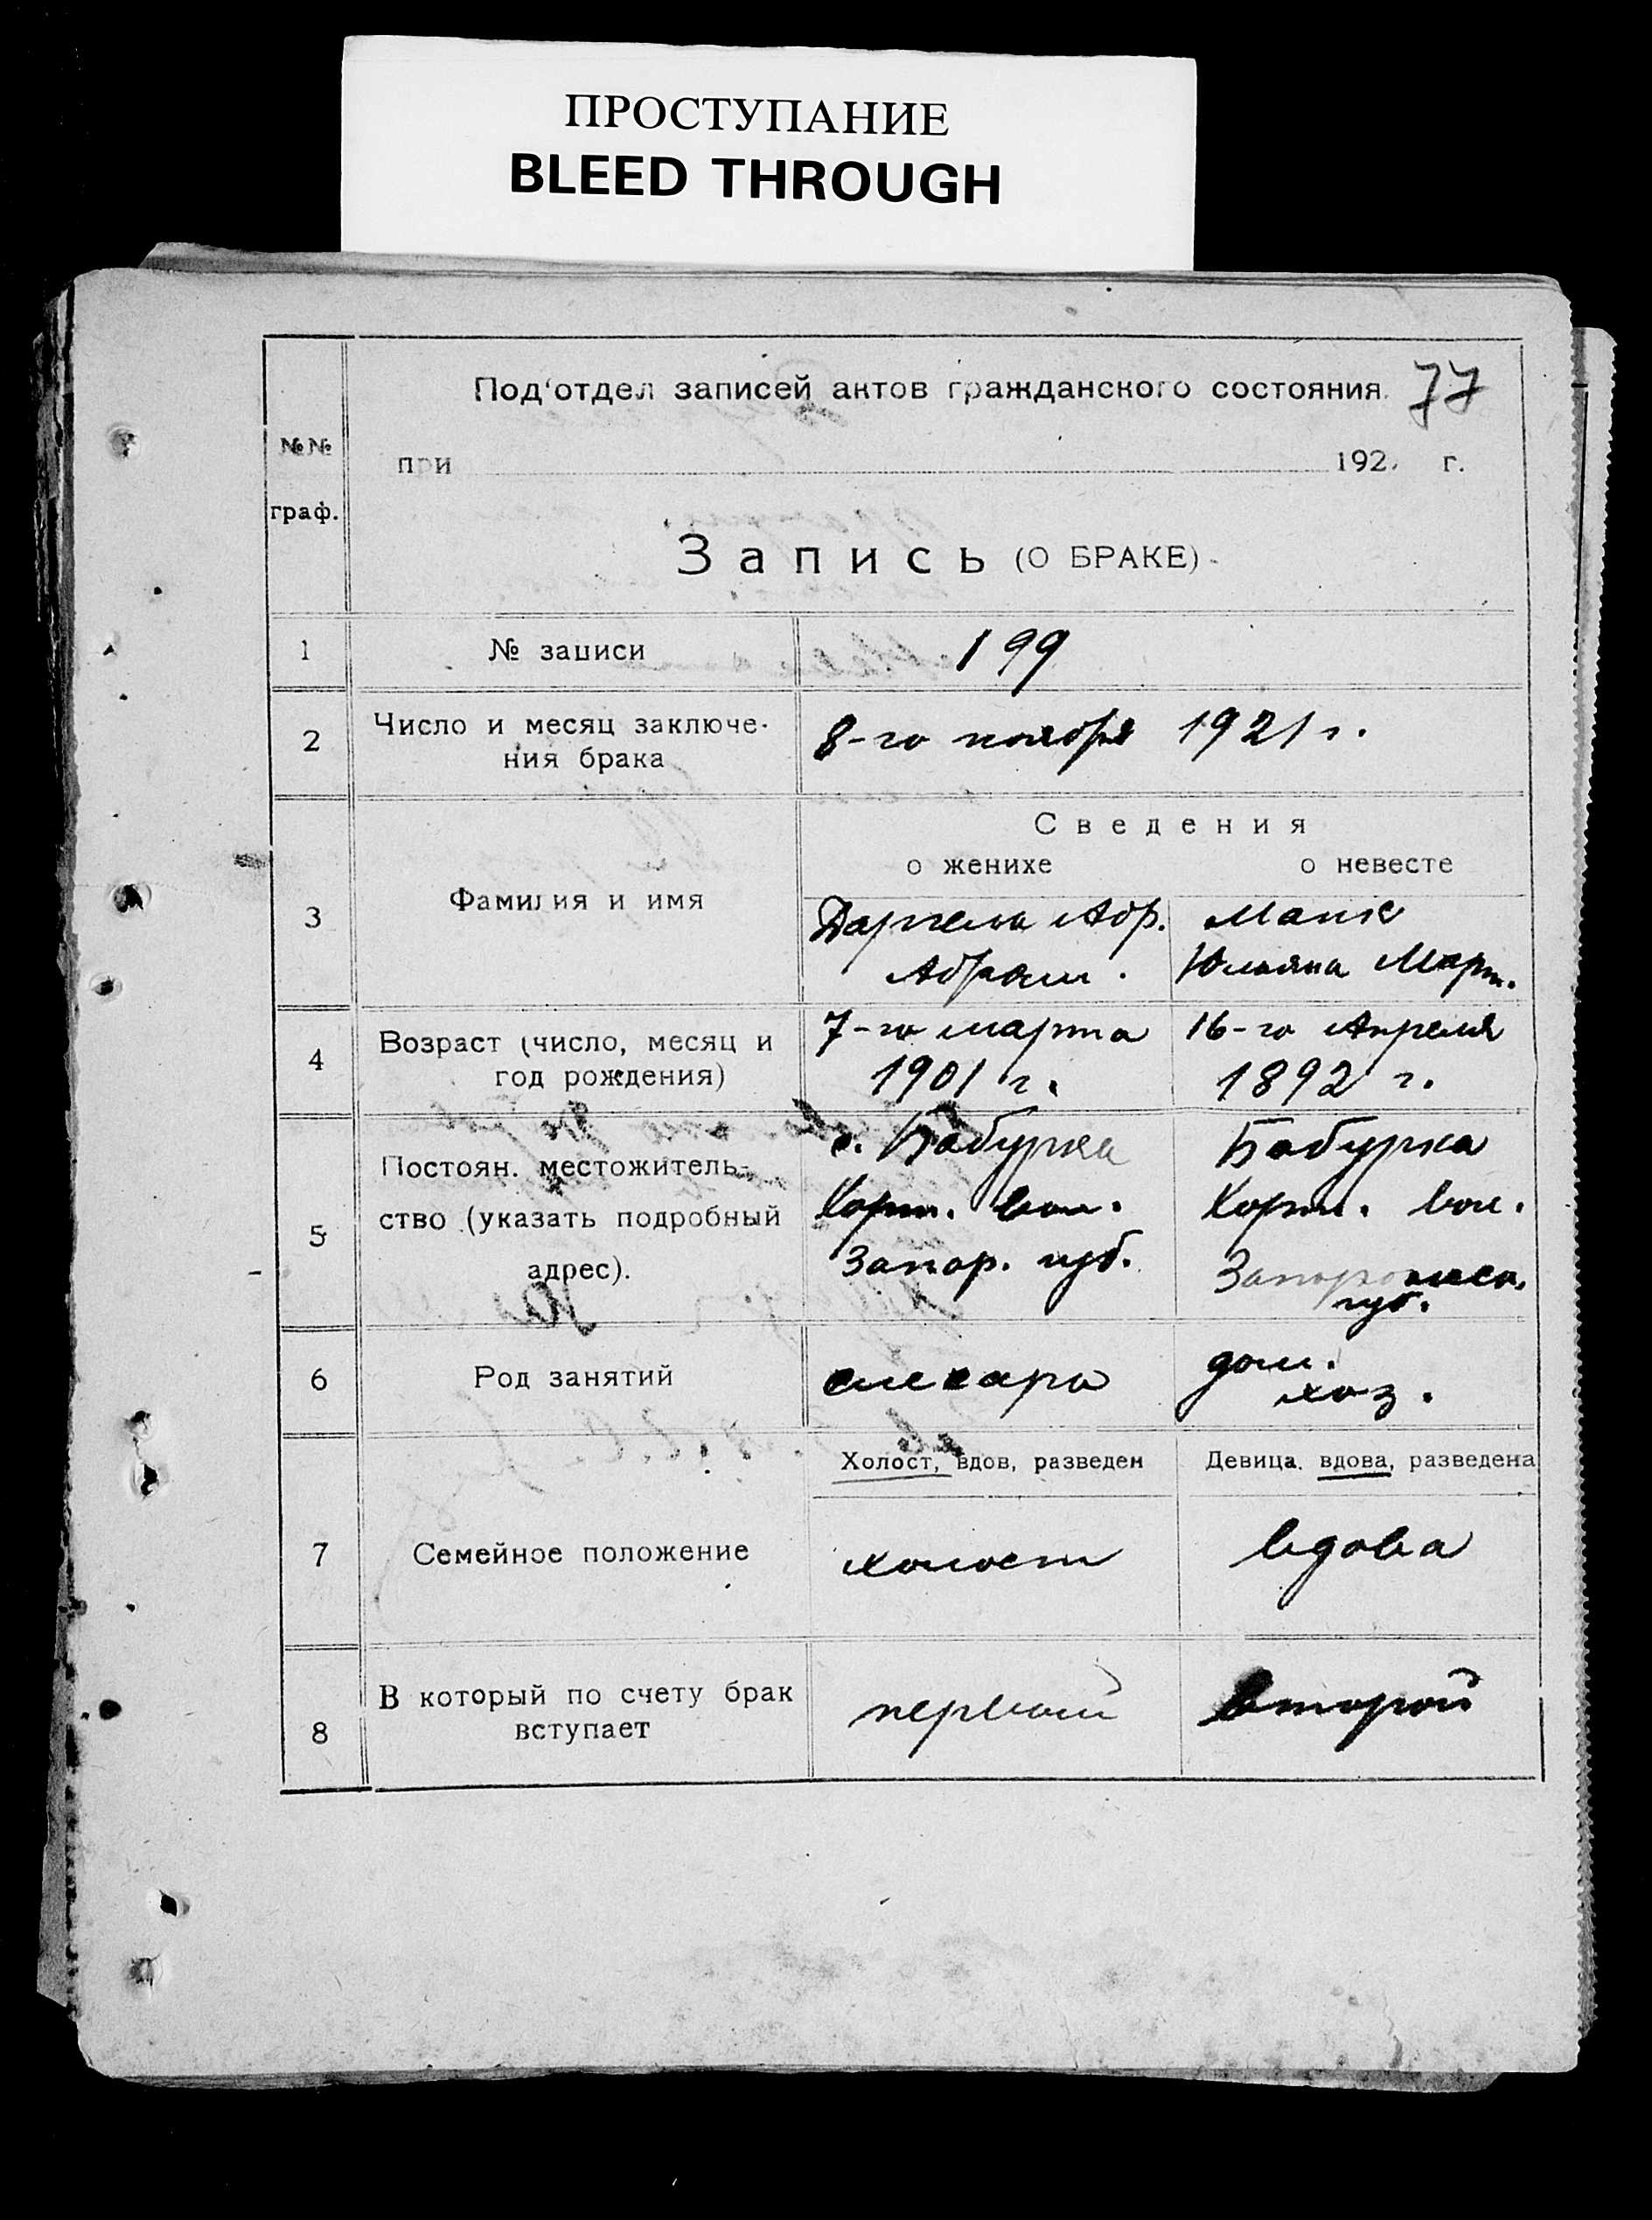 ПРОСТУПАНИЕ
BLEED THROUGH
Под'отдел записей актов гражданского состояния. 77
№№ граф.
при 192 г.
Запись (О БРАКЕ)
1 № записи 199
2 Число и месяц заключе-
ния брака
8-го ноября 1921 г.
Сведения
о женихе о невесте
3 Фамилия и имя
Абр. Манк
Абрам. Юльяна Март.
4 Возраст (число, месяц и
год рождения)
7-го марта 16-го Апреля
1901 г. 1892 г.
5 Постоян. местожитель-
ство (указать подробный
адрес).
с. Бабурка Бабурка
Хорт. вол. Хорт. вол.
Запор. губ. Запорожск.
губ.
6 Род занятий
слесарь дом.
хоз.
7 Семейное положение
Холост, вдов, разведен Девица, вдова, разведена
холост вдова
8 В который по счету брак
вступает
первый второй